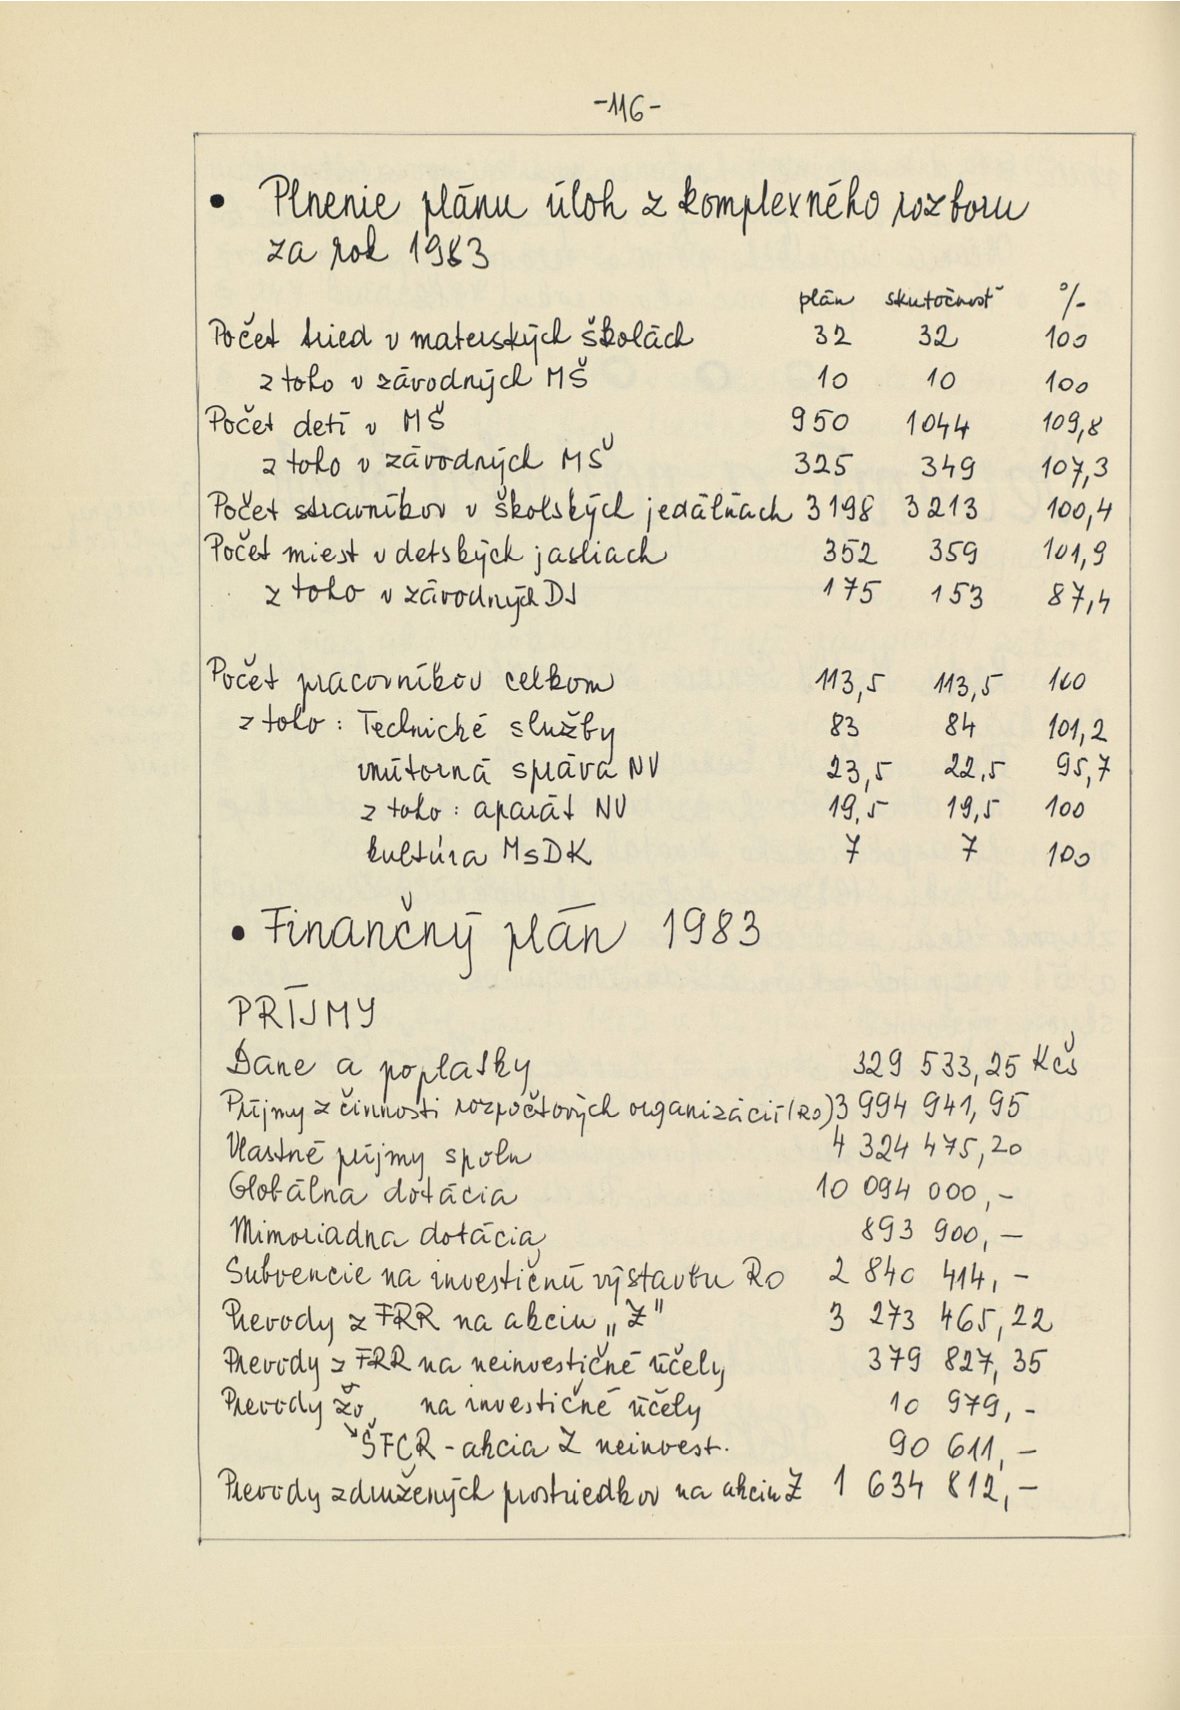 -116-
• Plnenie plánu úloh z komplexného rozboru
za rok 1983
plán skutočnosť %
Počet tried v materských školách 32 32 100
z toho v závodných MŠ 10 10 100
Počet detí v MŠ 950 1044 109,8
z toho v závodných MŠ 325 349 107,3
Počet stravníkov v školských jedálňach 3198 3213 100,4
Počet miest v detských jasliach 352 359 101,9
z toho v závodných DJ 175 153 87,4
Počet pracovníkov celkom 113,5 113,5 100
z toho: Technické služby 83 84 101,2
vnútorná správa NV 23,5 22,5 95,7
z toho: aparát NV 19,5 19,5 100
kultúra MsDK 7 7 100
• Finančný plán 1983
PRÍJMY
Dane a poplatky 329 533,25 Kčs
Príjmy z činnosti rozpočtových organizácií (RO) 3 994 941,95
Vlastné príjmy spolu 4 324 475,20
Globálna dotácia 10 094 000,-
Mimoriadna dotácia 893 900,-
Subvencie na investičnú výstavbu RO 2 840 414,-
Prevody z FRR na akciu „Z" 3 273 465,22
Prevody z FRR na neinvestičné účely 379 827,35
Prevody zo na investičné účely 10 979,-
ŠFCR - akcia Z neinvest. 90 611,-
Prevody združených prostriedkov na akciu Z 1 634 812,-